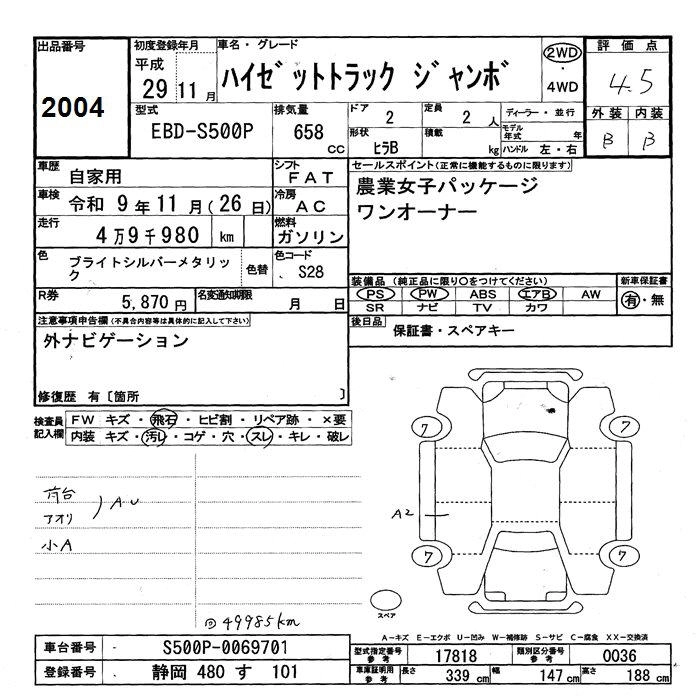 出品番号 2004
初度登録年月 平成 29 11 月
車名・グレード ハイゼットトラック ジャンボ
2WD ・ 4WD
評価点 4.5
型式 EBD-S500P
排気量 658 CC
ドア 2
定員 2 人
ディーラー・並行
外装 内装
B B
形状 ヒラB
積載 kg
モデル年式 年
ハンドル 左・右
車歴 自家用
シフト FAT
セールスポイント(正常に機能するものに限ります)
農業女子パッケージ
ワンオーナー
車検 令和 9 年 11 月(26 日)
冷房 AC
走行 4 万 9 千 980 km
燃料 ガソリン
色 ブライトシルバーメタリック
色替
色コード S28
R券 5,870 円
名変通知期限 月 日
装備品(純正品に限り〇をつけてください)
新車保証書
PS PW ABS エアB AW
有・無
SR ナビ TV カワ
注意事項申告欄(不具合内容等は具体的に記入して下さい)
外ナビゲーション
後日品 保証書・スペアキー
修復歴 有〔箇所 〕
検査員記入欄
FW キズ・飛石・ヒビ割・リペア跡・×要
内装 キズ・汚レ・コゲ・穴・スレ・キレ・破レ
7 7
荷台
アオリ
) AU
小A
A2
7 7
スペア
@ 49985km
A-キズ E-エクボ U-凹み W-補修跡 S-サビ C-腐食 XX-交換済
車台番号 S500P-0069701
型式指定番号 参考 17818
類別区分番号 参考 0036
登録番号 静岡 480 す 101
車庫証明用 参考 長さ 339 cm 幅 147 cm 高さ 188 cm